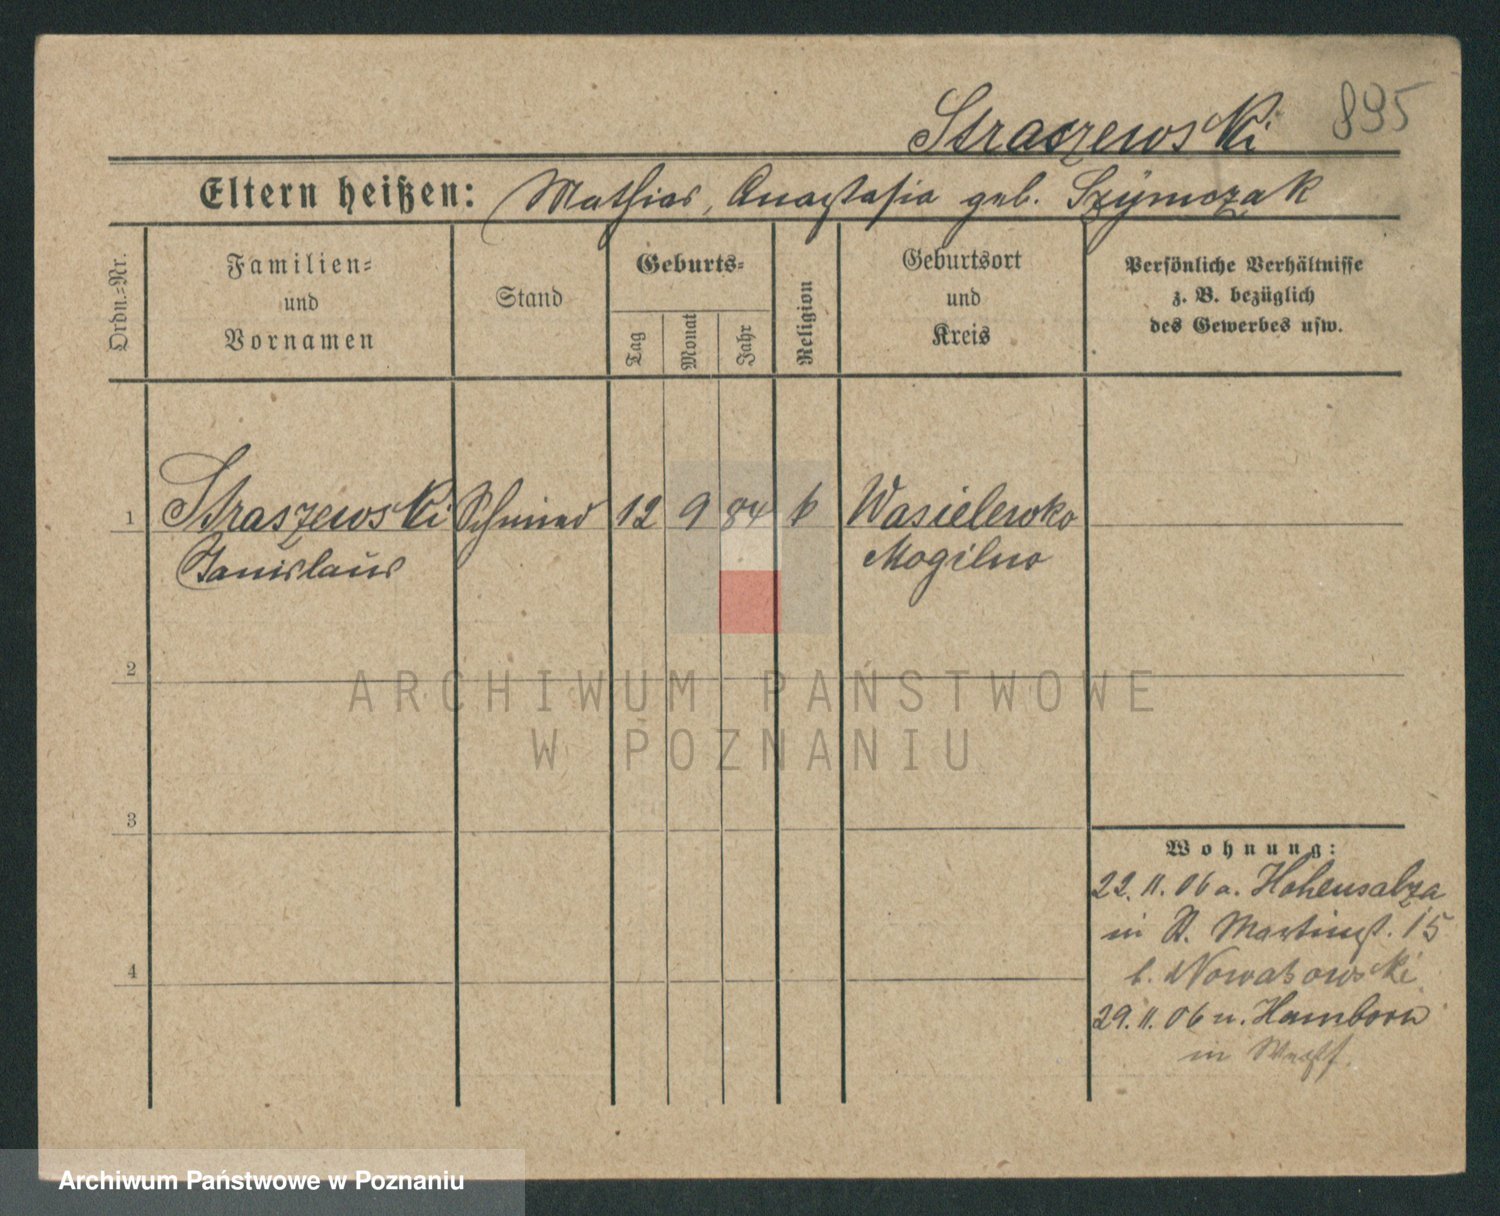 Straszewski 895
Eltern heißen: Mathias, Anastasia geb. Szymczak
Ordn.-Nr.
Familien-
und
Vornamen
Stand
Geburts-
Tag
Monat
Jahr
Religion
Geburtsort
und
Kreis
Persönliche Verhältnisse
z. B. bezüglich
des Gewerbes usw.
1 Straszewski Schmied 12 9 84 k Wasielewko
Stanislaus Mogilno
2
ARCHIWUM PAŃSTWOWE
W POZNANIU
3
Wohnung:
22. 11. 06 a. Hohensalza
in St. Martinst. 15
b. Nowakowski
4
29. 11. 06 n. Hamborn
in Westf.
Archiwum Państwowe w Poznaniu